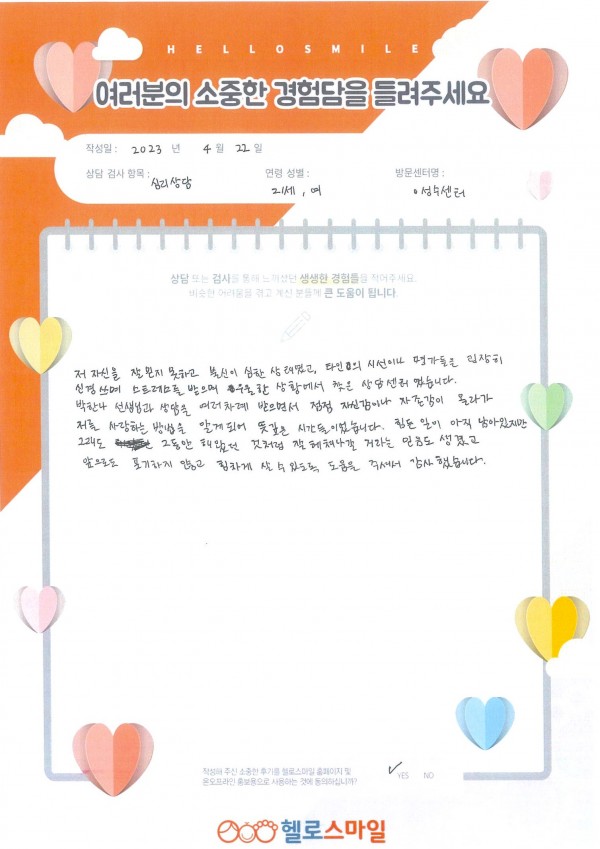 HELLOSMILE
여러분의 소중한 경험담을 들려주세요
작성일 : 2023 년 4 월 22 일
상담 검사 항목 : 심리상담 연령 성별 : 21세, 여 방문센터명 : 이성수센터
상담 또는 검사를 통해 느끼셨던 생생한 경험들을 적어주세요.
비슷한 어려움을 겪고 계신 분들께 큰 도움이 됩니다.
저 자신을 잘 믿지 못하고 불신이 심한 상태였고, 타인의 시선이나 평가들을 굉장히
신경 쓰며 스트레스를 받으며 우울한 상황에서 찾은 상담센터 였습니다.
박한나 선생님과 상담을 여러차례 받으면서 점점 자신감이나 자존감이 올라가
저를 사랑하는 방법을 알게되어 뜻깊은 시간들이었습니다. 힘든 일이 아직 남아있지만
그래도 그동안 해왔던 것처럼 잘 헤쳐나갈 거라는 믿음도 생겼고
앞으로도 포기하지 않고 힘차게 살 수 있도록 도움을 주셔서 감사했습니다.
작성해 주신 소중한 후기를 헬로스마일 홈페이지 및
온오프라인 홍보용으로 사용하는 것에 동의하십니까?
YES NO
헬로스마일